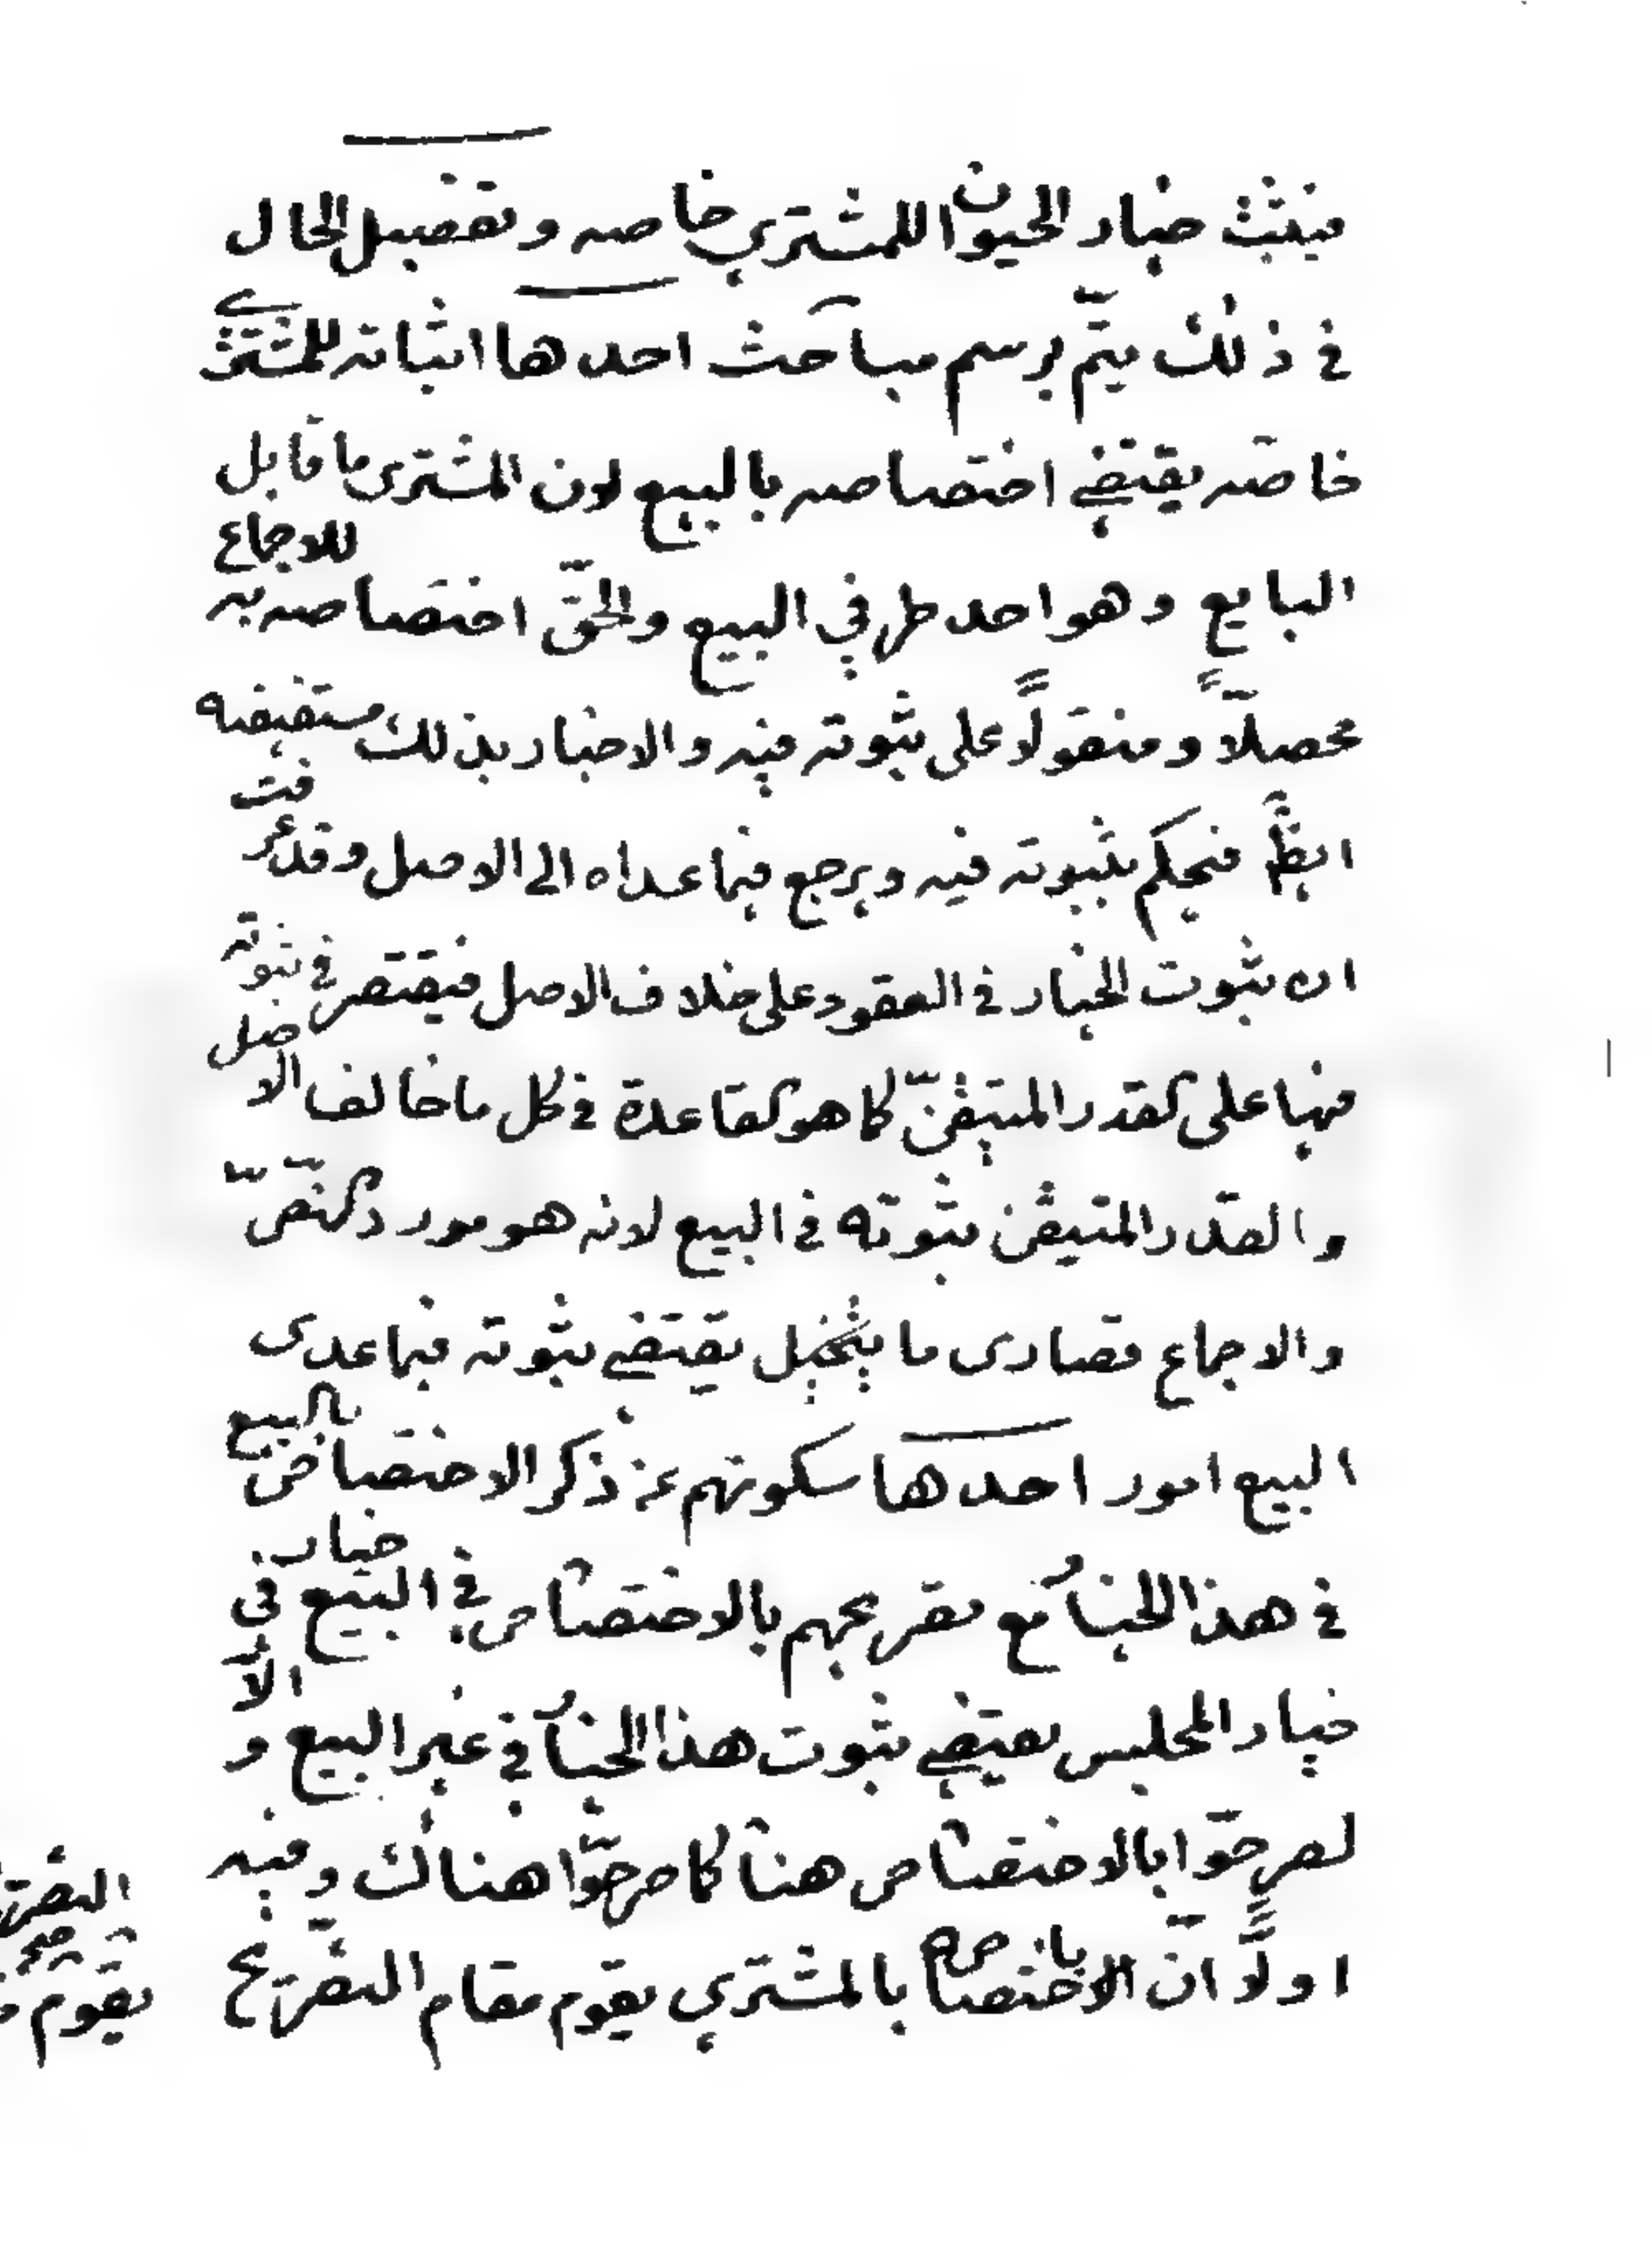 فيثبت خيار الحيوان للمشتري خاصه وتفصيل الحال
في ذلك يتمّ برسم مباحث احدها اثباته للمشتري
خاصه يقتضي اختصاصه بالبيع لان المشترى ما قابل
البايع وهو احد طرفي البيع والحقّ اختصاصه به للاجماع
محصلاً ومنقولاً على ثبوته فيه والاخبار بذلك مستفيضه
ايظً فنحكم بثبوته فيه ويرجع فيما عداه الى الاصل وقد عرفت
ان ثبوت الخيار في العقود على خلاف الاصل فيقتصر في ثبوته
فيها على القدر المتيقّن كما هو القاعدة في كل ما خالف الاصل
والقدر المتيقن ثبوته في البيع لانه هو مورد النصّ
والاجماع قصارى ما يتخيل يقتضي ثبوته فيما عدى
البيع امور احدها سكوتهم عن ذكر الاختصاص بالبيع
في هذا الخيار مع تصريحهم بالاختصاص في البيع في خيار
خيار المجلس يقتضي ثبوت هذا الخيار في غير البيع والاّ
لصرحّوا بالاختصاص هنا كما صرحّوا هناك وفيه
اولاً انّ الاختصاص بالمشتري يقوم مقام التصريح